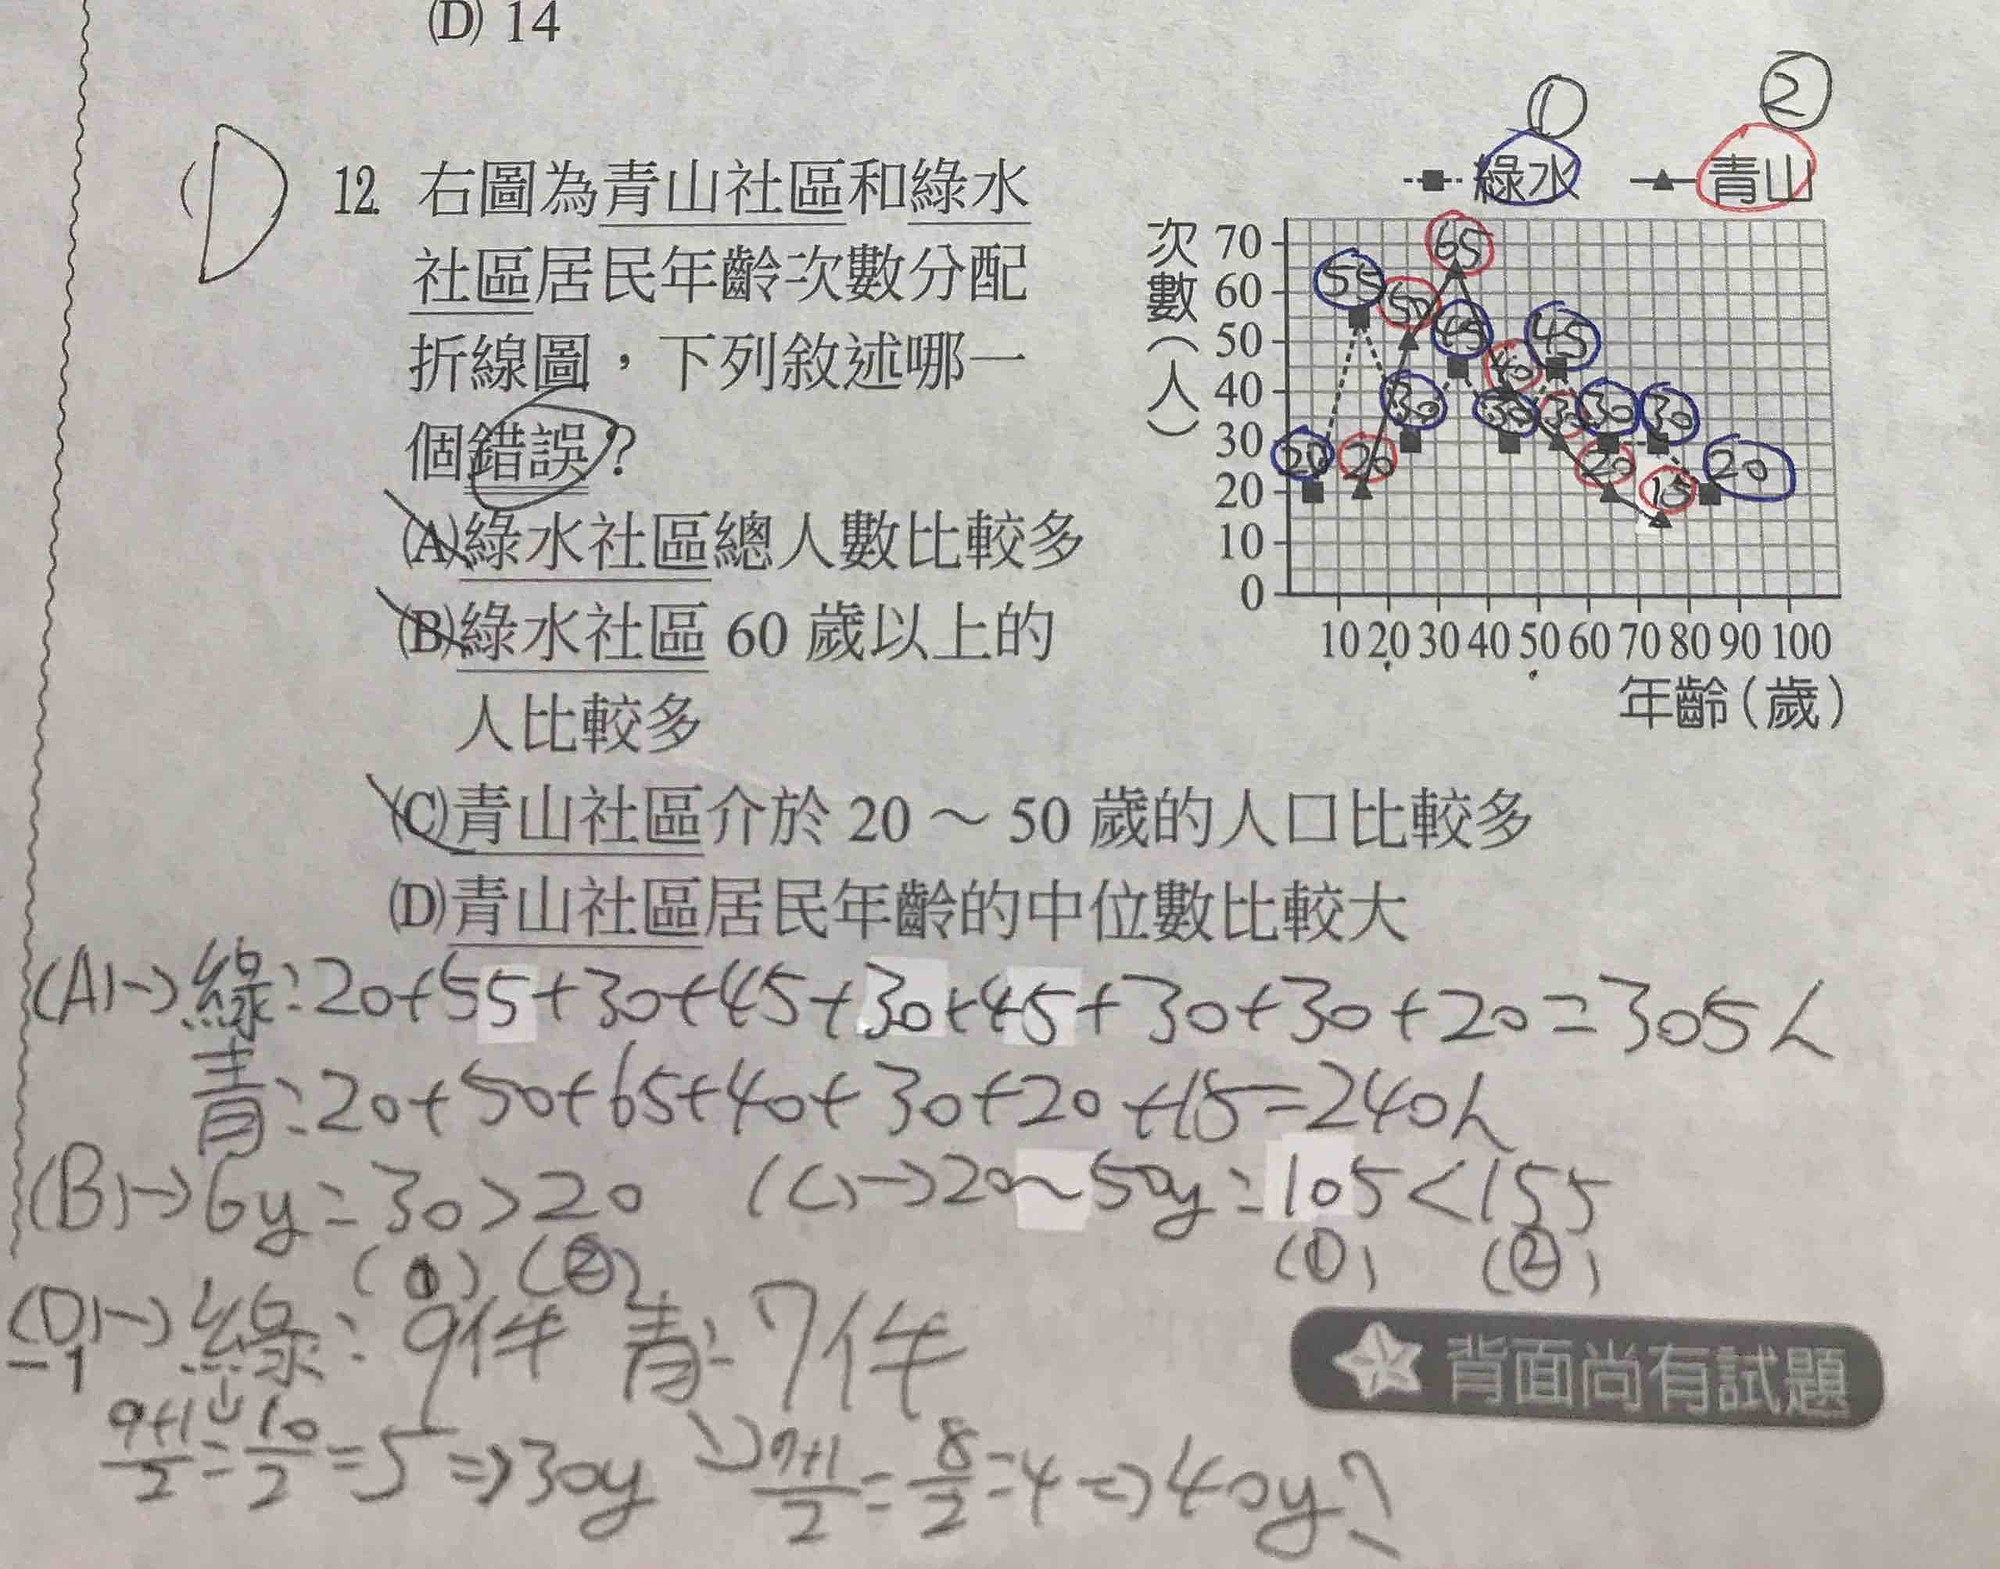 (D) 14
① ②
(D) 12. 右圖為青山社區和綠水
社區居民年齡次數分配
折線圖，下列敘述哪一
個錯誤？
(A)綠水社區總人數比較多
(B)綠水社區 60 歲以上的
人比較多
(C)青山社區介於 20～50 歲的人口比較多
(D)青山社區居民年齡的中位數比較大
綠水 青山
次數（人）
70
60
50
40
30
20
10
0
10 20 30 40 50 60 70 80 90 100
年齡（歲）
20 55 30 45 30 45 30 30 20
20 50 65 40 30 20 15
(A)→綠：20+55+30+45+30+45+30+30+20=305人
青：20+50+65+40+30+20+15=240人
(B)→6y=30>20 (C)→20~50y=105<155
(①) (②) (①) (②)
(D)→綠：9件 青：7件
-1
9+1/2=10/2=5⇒30y 7+1/2=8/2=4⇒40y?
背面尚有試題